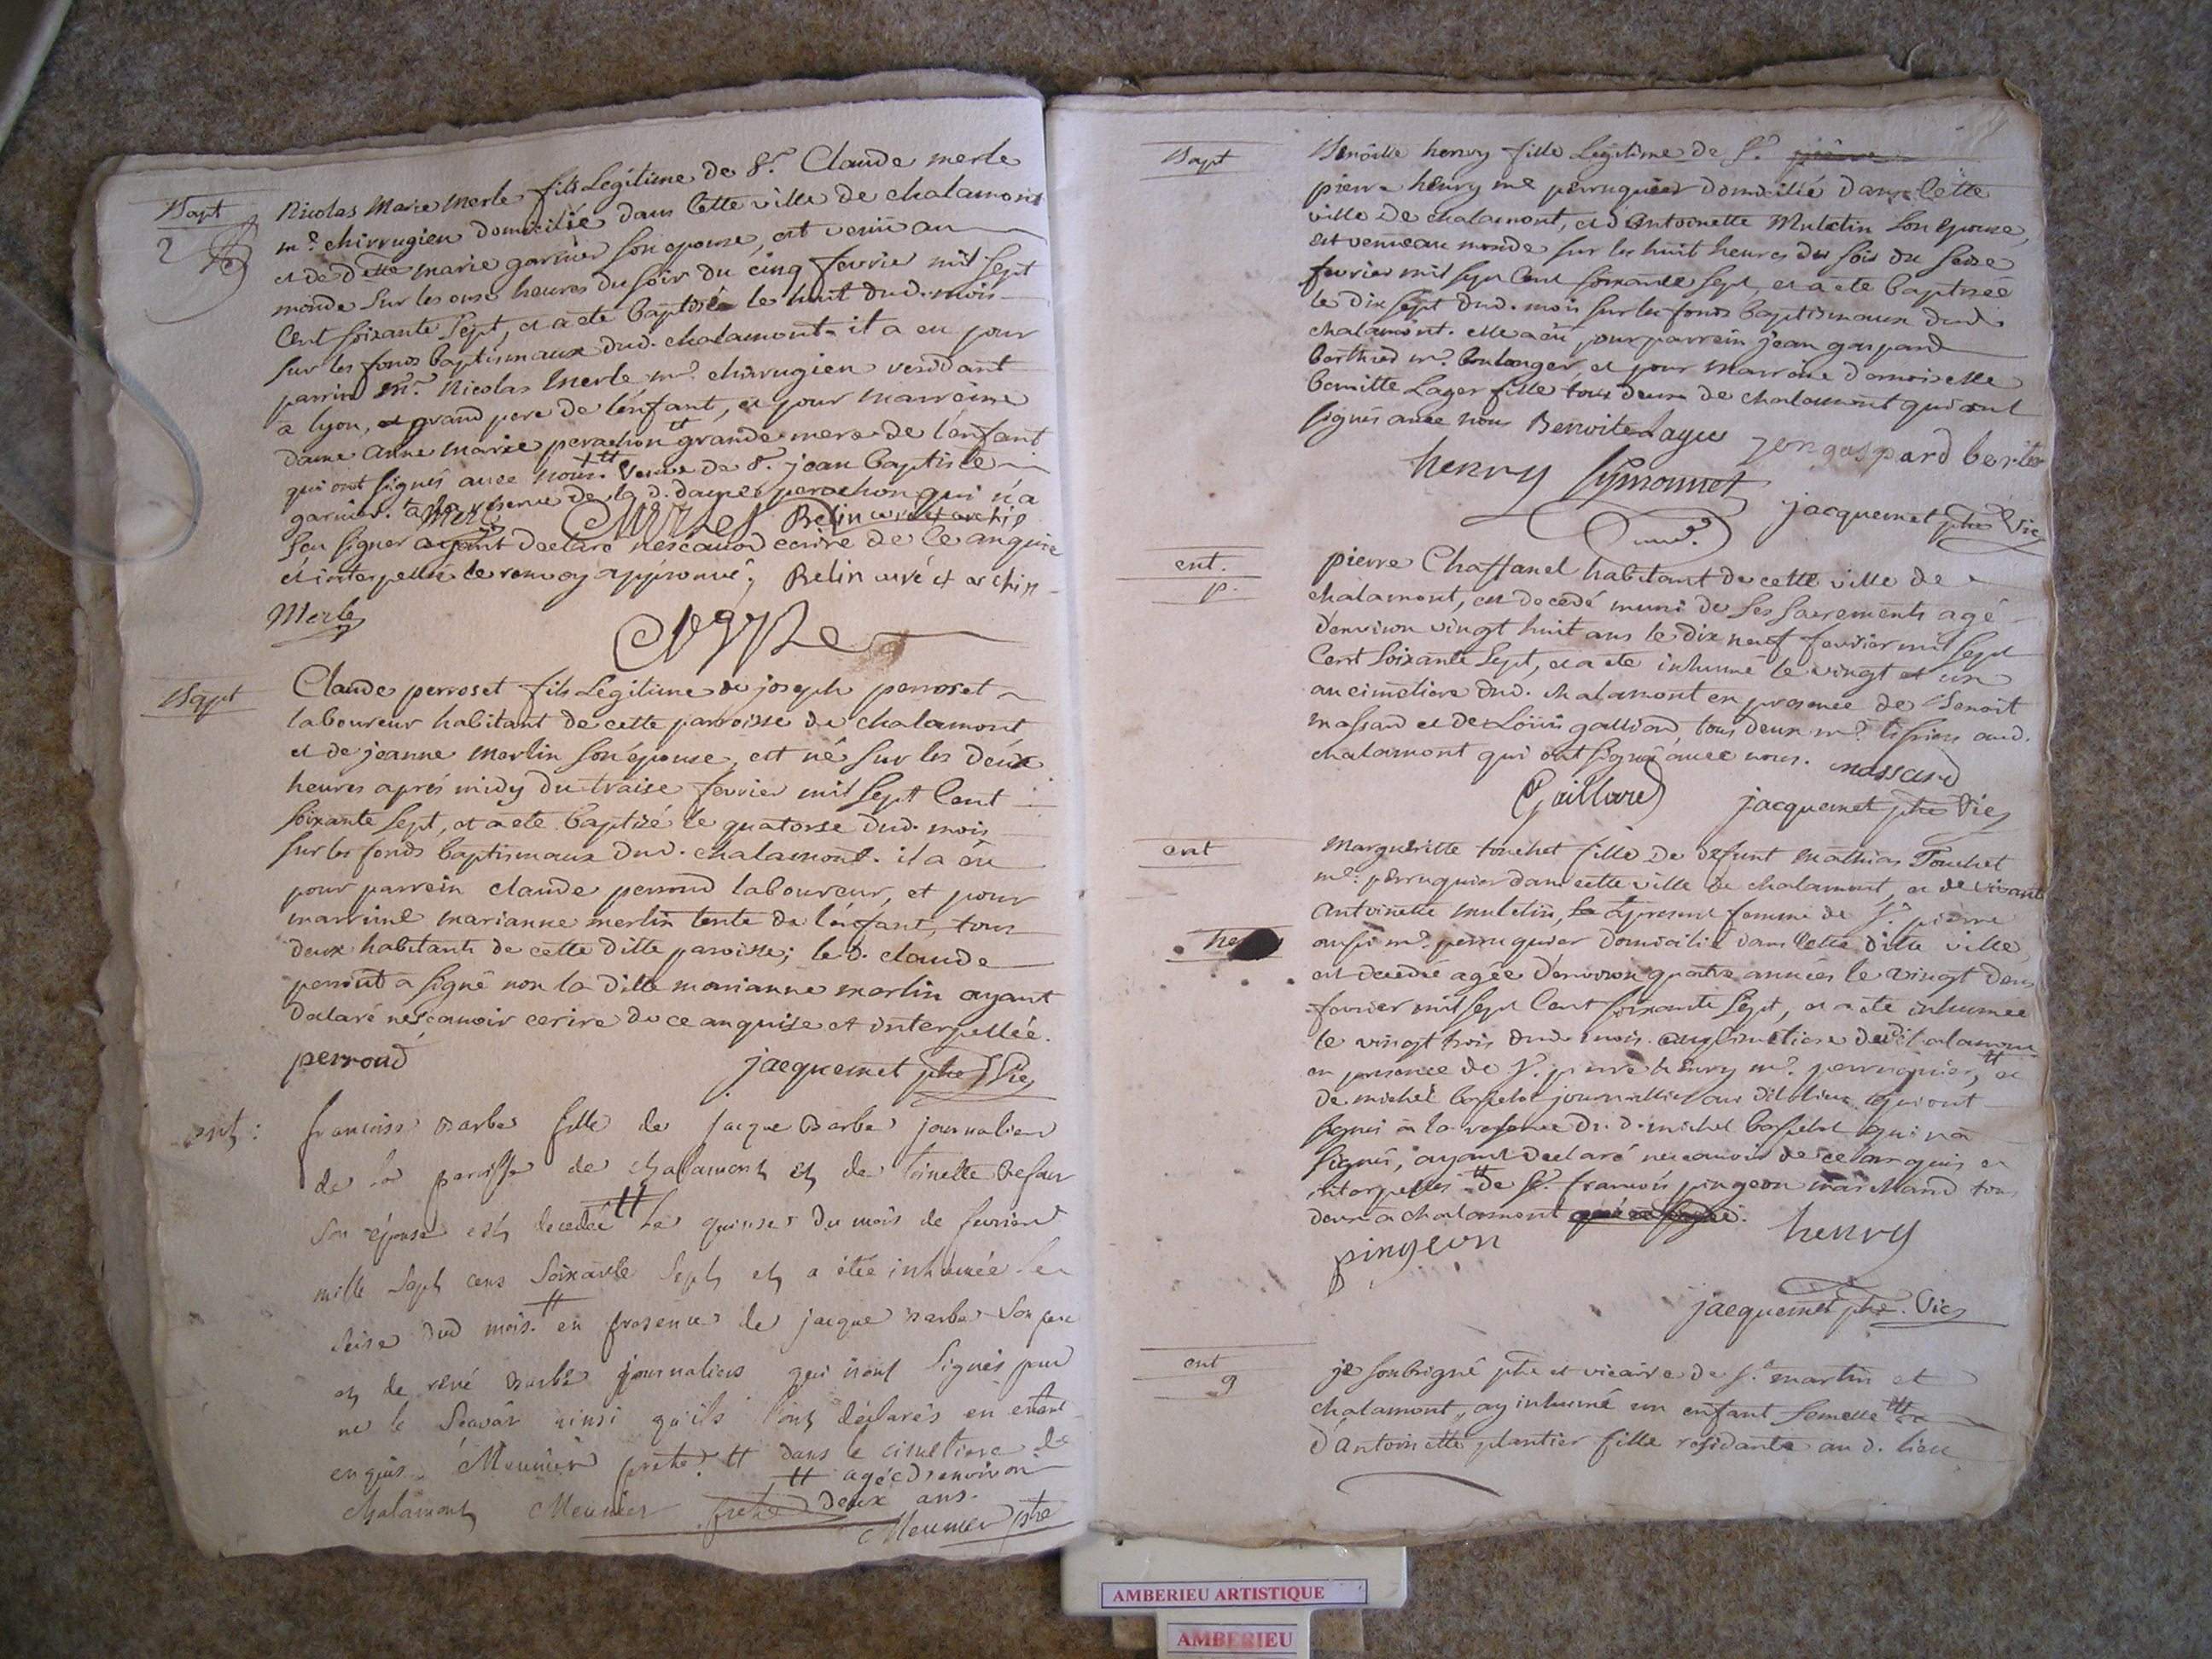 Bapt
2
Nicolas Marie Merle fils Legitime de Sr. Claude merle
me. chirrugien domicilié dans Cette ville de chalamont
et de delle marie garnier son epouse, est venu au
monde sur les onse heures du soir du cinq fevrie mil sept
Cent soixante sept, et a eté baptisé le huit dud. mois
sur les fonds baptismaux dud. chalamont. il a eu pour
parrin Mr. Nicolas Merle me. chirrugien
à lyon, et grand pere de l'enfant, et pour marreine
dame anne marie perachon tt grande mere de l'enfant
qui ont signés avec nous. tt veuve de Sr. jean baptiste
garnier. à la reserve de la d. dame perachon qui n'a
Merle Belin curé et archip
sçu signer ayant declaré nescavoir ecrire de ce enquise
et interpellée le renvoy approuvé, Belin curé et archip
Merle
Bapt
Claude perroset fils Legitime de joseph perroset
laboureur habitant de cette parroisse de chalamont
et de jeanne merlin son épouse, est né sur les deux
heures aprés midy du traise fevrier mil sept Cent
soixante sept, et a eté baptizé le quatorse dud. mois
sur les fonds baptismaux dud. chalamont. il a eu
pour parrein claude perroud laboureur, et pour
marrine marianne merlin tente de l'enfant, tous
deux habitants de cette ditte paroisse; le d. claude
perrout a signé non la ditte marianne merlin ayant
declaré nescavoir ecrire de ce anquise et interpellée.
perroud jacquemet ptre Vic
ent:
francoise Barbe fille de jacque Barbe journalier
de la paroisse de chalamont et de toinette
son épouse est decedée tt le quinse du mois de fevrier
mille sept cens soixante sept et a étée inhumée le
seise dud mois. tt en presence de jacque Barbe son pere
et de rené Barbe journaliers qui n'ont signés pour
ne le sçavoir ainsi qu'ils l'ont déclarés en etant
enquis. Meunier pretre. tt dans le cimetiere de
tt agée d'environ
chalamont Meunier pretre deux ans.
Meunier ptre
Bapt
Benoitte henry fille Legitime de Sr.
pierre henry me perruquier domicilié dans Cette
ville de chalamont, et d'Antoinette Muletin son epouse,
est venue au monde sur les huit heures du soir du seise
fevrier mil sept Cent soixante sept, et a eté baptisée
le dix sept dud. mois sur les fonds baptismaux dud.
chalamont. elle a eu pour parrein jean gaspard
berthier me. boulanger, et pour marraine damoiselle
benoitte Lager fille tous deux de chalamont qui ont
signés avec nous Benoite Layer jengaspard
henry Symonnet
jacquemet ptre Vic
ent.
p.
pierre Chaffanel habitant de cette ville de
chalamont, est decedé muni de ses sacrements agé
d'environ vingt huit ans le dix neuf fevrier mil sept
Cent soixante sept, et a eté inhumé le vingt et un
au cimetiere dud. chalamont en presence de Benoit
massard et de Loüis galliard, tous deux me. tissiers aud.
chalamont qui ont signé avec nous. massard
Gaillard jacquemet ptre Vic
ent
Margueritte touchet fille de defunt mathias Touchet
me. perruquier dans cette ville de chalamont, et de vivante
Antoinette muletin, à present femme de Sr. pierre
aussi me. perruquier domicilié dans Cette ditte ville
est decedée agée d'environ quatre années le vingt deux
fevrier mil sept Cent soixante sept, et a eté inhumee
le vingt trois dud. mois au cimetiere dudit chalamont
en presence de Sr. pierre henry me. perruquier, tt et
de michel journallier au dit lieu qui ont
signés à la reserve du d. michel qui n'a
signé, ayant declaré nescavoir de ce enquis et
interpellés tt de Sr. francois pingeon marchand tous
deux a chalamont
pingeon henry
jacquemet ptre. Vic
ent
9
je soubsigné ptre et vicaire de St. martin et
chalamont, ay inhumé un enfant femelle
d'Antoinette plantier fille residante au d. lieu
AMBERIEU ARTISTIQUE
AMBERIEU